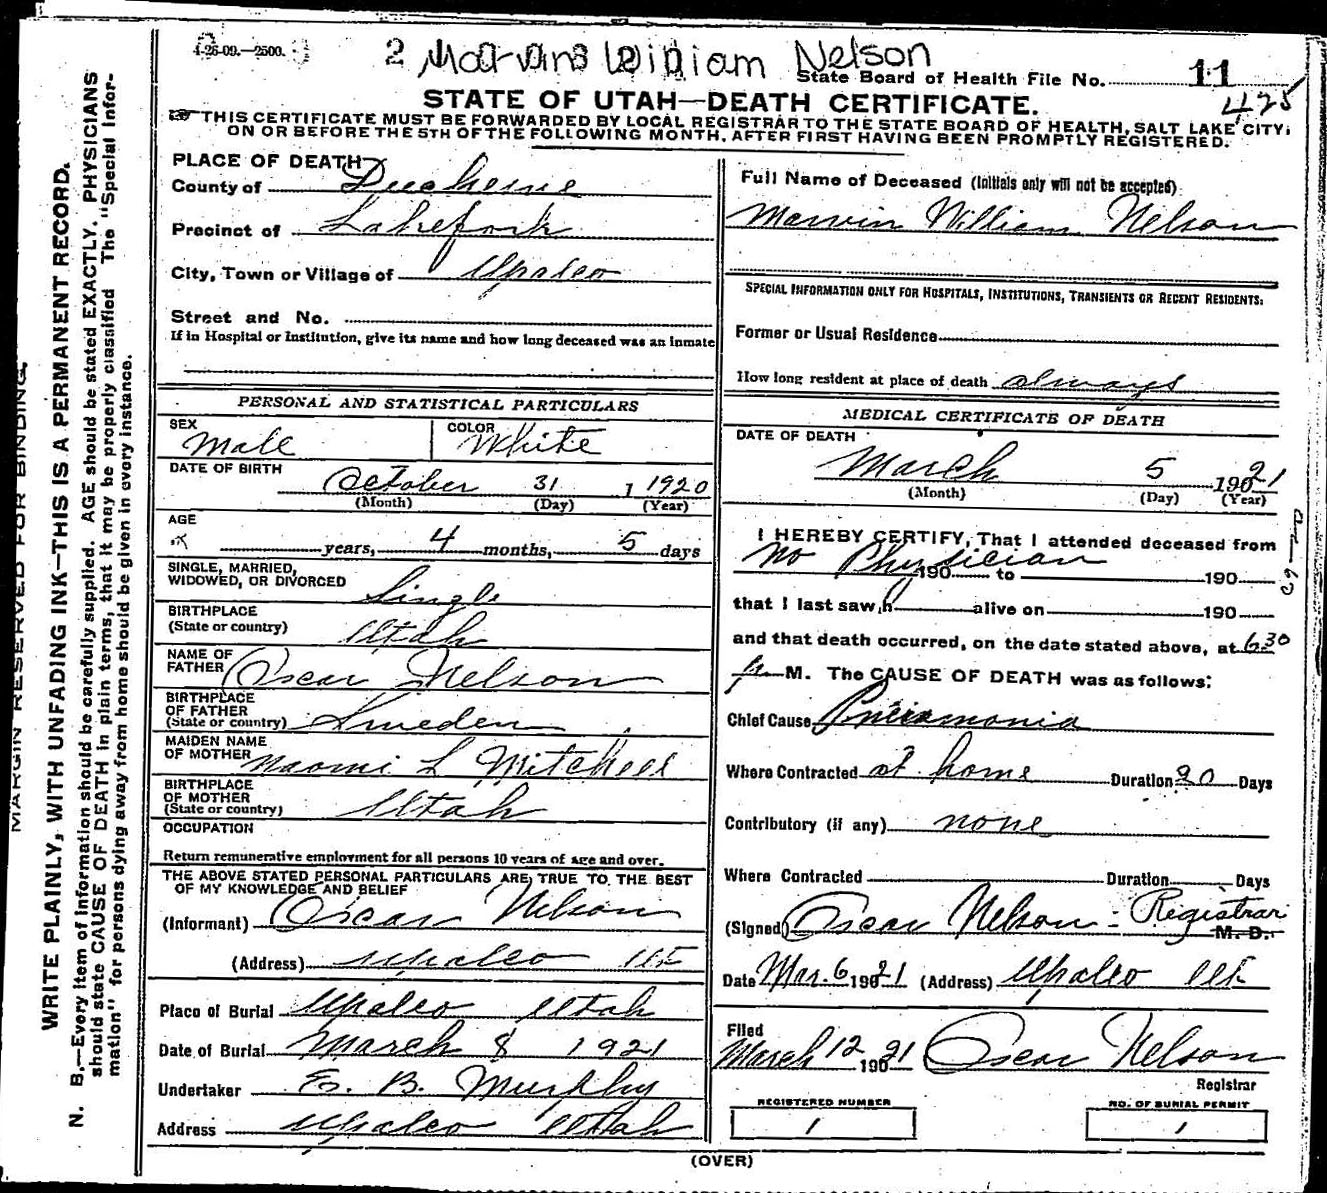 4-26-09.—2500.
2 Marvins William Nelson
State Board of Health File No. 11
425
STATE OF UTAH—DEATH CERTIFICATE.
THIS CERTIFICATE MUST BE FORWARDED BY LOCAL REGISTRAR TO THE STATE BOARD OF HEALTH, SALT LAKE CITY,
ON OR BEFORE THE 5TH OF THE FOLLOWING MONTH, AFTER FIRST HAVING BEEN PROMPTLY REGISTERED.
MARGIN RESERVED FOR BINDING.
WRITE PLAINLY, WITH UNFADING INK—THIS IS A PERMANENT RECORD.
N. B.—Every item of information should be carefully supplied. AGE should be stated EXACTLY. PHYSICIANS
should state CAUSE OF DEATH in plain terms, that it may be properly classified The "Special Infor-
mation" for persons dying away from home should be given in every instance.
PLACE OF DEATH
County of Duchesne
Precinct of Lakefork
City, Town or Village of Upalco
Street and No.
If in Hospital or Institution, give its name and how long deceased was an inmate
PERSONAL AND STATISTICAL PARTICULARS
SEX Male
COLOR White
DATE OF BIRTH
October 31 1 1920
(Month) (Day) (Year)
AGE
years, 4 months, 5 days
SINGLE, MARRIED,
WIDOWED, OR DIVORCED Single
BIRTHPLACE
(State or country) Utah
NAME OF
FATHER Oscar Nelson
BIRTHPLACE
OF FATHER
(State or country) Sweden
MAIDEN NAME
OF MOTHER Naomi L Mitchell
BIRTHPLACE
OF MOTHER
(State or country) Utah
OCCUPATION
Return remunerative employment for all persons 10 years of age and over.
THE ABOVE STATED PERSONAL PARTICULARS ARE TRUE TO THE BEST
OF MY KNOWLEDGE AND BELIEF
(Informant) Oscar Nelson
(Address) Upalco Ut
Place of Burial Upalco Utah
Date of Burial March 8 1921
Undertaker E. B. Murphy
Address Upalco Utah
Full Name of Deceased (Initials only will not be accepted)
Marvin William Nelson
SPECIAL INFORMATION ONLY FOR HOSPITALS, INSTITUTIONS, TRANSIENTS OR RECENT RESIDENTS:
Former or Usual Residence
How long resident at place of death always
MEDICAL CERTIFICATE OF DEATH
DATE OF DEATH
March 5 1921
(Month) (Day) (Year)
I HEREBY CERTIFY, That I attended deceased from
No Physician 190 to 190
that I last saw h alive on 190
and that death occurred, on the date stated above, at 630
M. The CAUSE OF DEATH was as follows:
Chief Cause Pneumonia
Where Contracted at home Duration 20 Days
Contributory (if any) none
Where Contracted Duration Days
(Signed) Oscar Nelson - Registrar
M. D.
Date Mar. 6 1921 (Address) Upalco Ut
Filed
March 12 1921 Oscar Nelson
Registrar
REGISTERED NUMBER
1
NO. OF BURIAL PERMIT
1
(OVER)